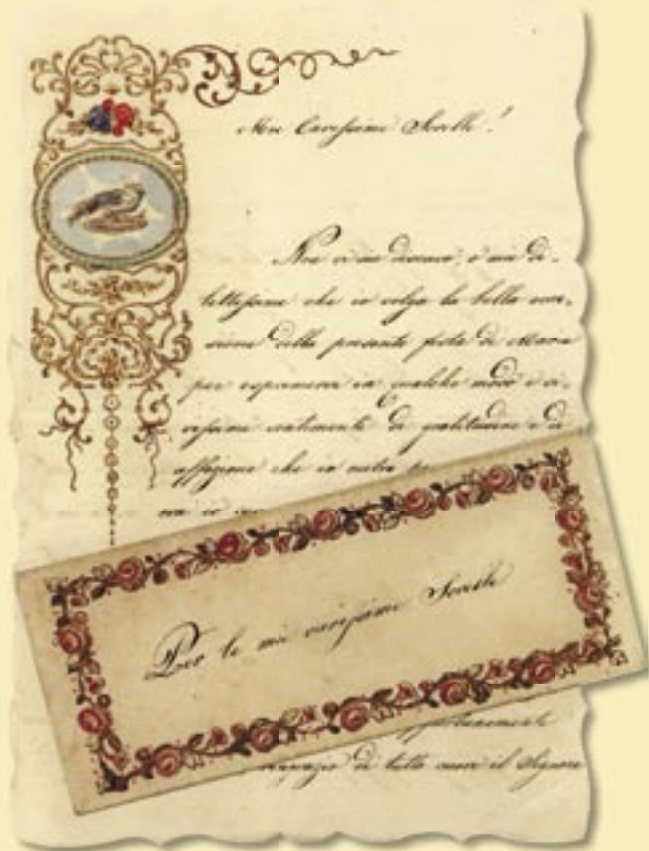 Mie Carissime Sorelle!
Non vi sia discaro, o mie di-
lettissime che io colga la bella occa-
sione della presente festa di Maria
per esprimervi in qualche modo i vi-
vissimi sentimenti di gratitudine e di
affezione che io nutro
io
Per le mie carissime Sorelle
ringrazio di tutto cuore il Signore